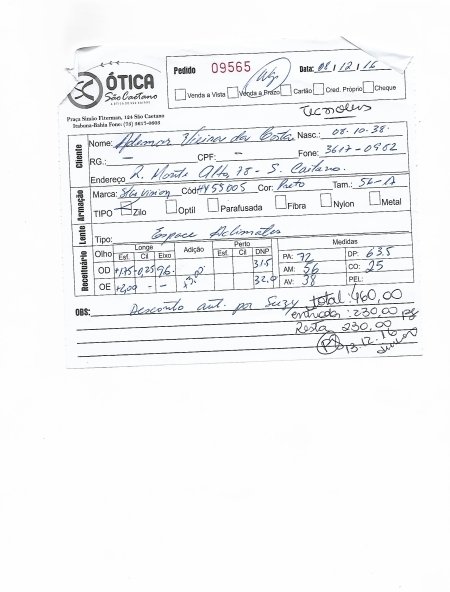 ÓTICA
São Caetano
Pedido 09565 Data: 02/12/16
Venda a Vista Venda a Prazo Cartão Cred. Próprio Cheque
Praça Simão Fiterman, 124 São Caetano
Itabuna-Bahia Fone: (73) 3617-0603
Cliente
Nome: Ademar Vieira da Costa Nasc.: 08.10.38.
RG.: — CPF: — Fone: 3617-0962
Endereço R. Monte Alto, 78 - S. Caetano.
Armação
Marca: Stilo Vision Cód HY53005 Cor: Preto Tam.: 56-17
TIPO Zilo Optil Parafusada Fibra Nylon Metal
Lente
Tipo: Espace Aclimates
Receituário
Olho Longe Adição Perto DNP Medidas
Esf. Cil Eixo Esf Cil
OD +1,75 -0,25 96 31.5
OE +2,00 - - +3,00 32,0
PA: 72 DP: 63.5
AM: 56 CO: 25
AV: 38 PEL:
OBS: Desconto aut. por Suzy total: 460,00
entrada: 230,00 pg
Resta 230,00
Pg 13-12-16
Junior